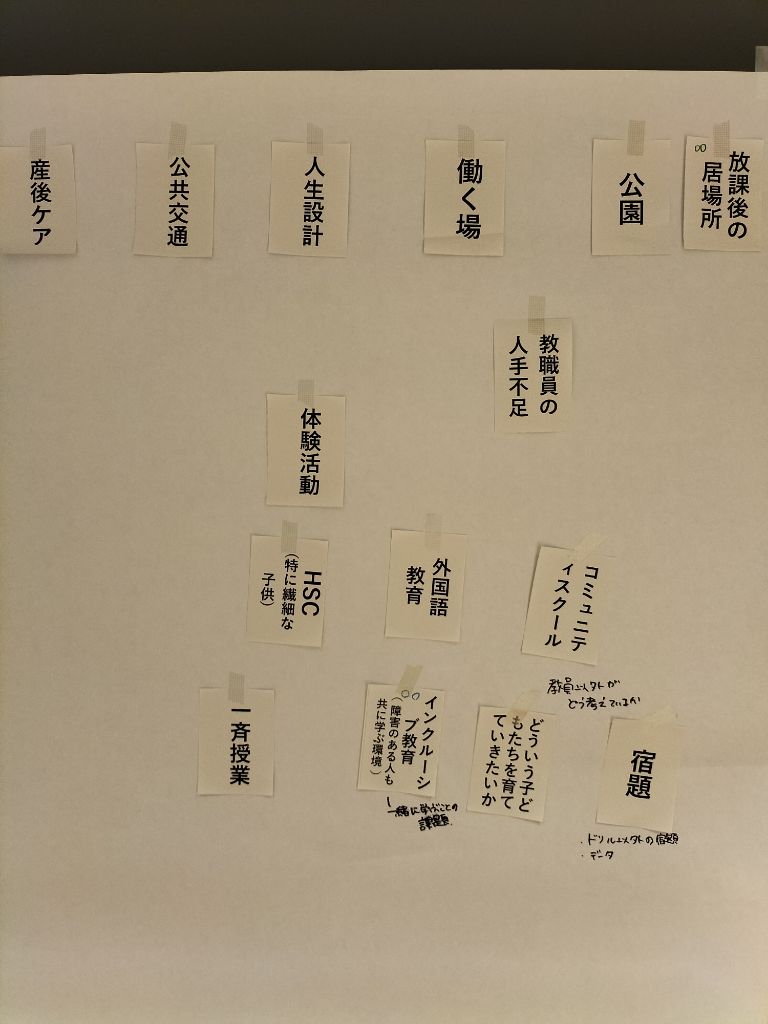 産後ケア
公共交通
人生設計
働く場
公園
放課後の
居場所
教職員の
人手不足
体験活動
HSC
(特に繊細な
子供)
外国語
教育
コミュニテ
ィスクール
教員以外が
どう考えているか
一斉授業
インクルーシ
ブ教育
(障害のある人も
共に学ぶ環境)
一緒に学ぶことの
課題
どういう子ど
もたちを育て
ていきたいか
宿題
・ドリル以外の宿題
・データ